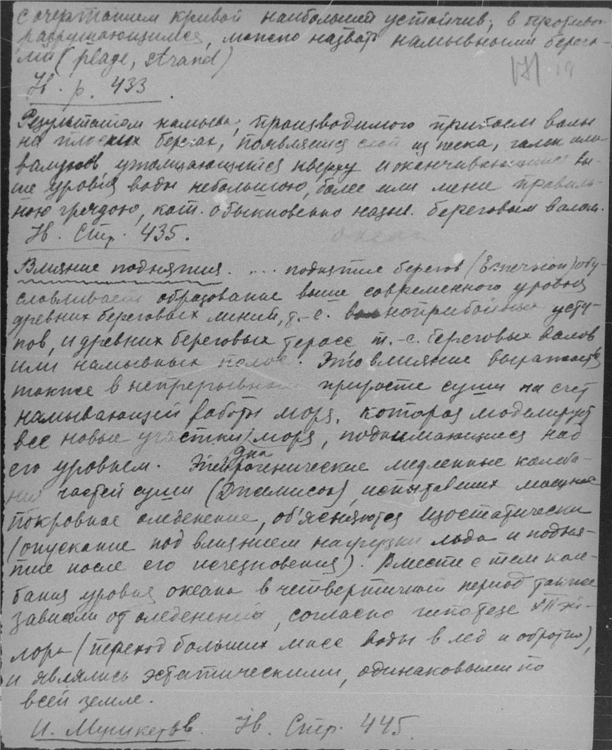 с очертанием кривой наиболее устойчив; в противо
разрушающимся, можно назвать намывными берега-
ми (plage, strand)
171 19
IV. p. 433
Результатом намыва, производимого прибоем волны
на плоских берегах, появляется слой из песка, гальки или
валунов утолщающийся кверху и оканчивающийся вы-
ше уровня воды небольшою, более или мене правиль-
ною грядою, кот. обыкновенно назыв. береговым валом.
IV. Стр. 435.
Влияние поднятия. ... поднятие берегов (Emersion) обу-
словливает образование выше современного уровня
древних береговых линий, т.-е. волноприбойных усту-
пов, и древних береговых терасс т.-е. береговых валов
или намывных полос. Это влияние выражается
также в непрерывном приросте суши на счет
намывающей работы моря, которая моделирует
все новые участки дна моря, поднимающиеся над
его уровнем. Эпейрогенические медленные колеба-
ния частей суши (Джемисон), испытавших мощное
покровное оледенение, об'ясняются изостатически
(опускание под влиянием нагрузки льда и подня-
тие после его исчезновения). Вместе с тем коле-
бания уровня океана в четвертичный период также
зависели от оледенений, согласно гипотезе
лора (переход больших масс воды в лед и обратно),
и являлись эстатическими, одинаковыми по
всей земле.
И. Мушкетов. IV. Стр. 445.